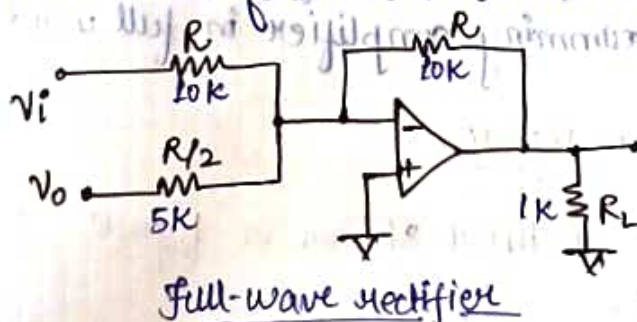 R
10K
Vi
R
10K
-
+
Vo
R/2
5K
1K
RL
Full-wave rectifier